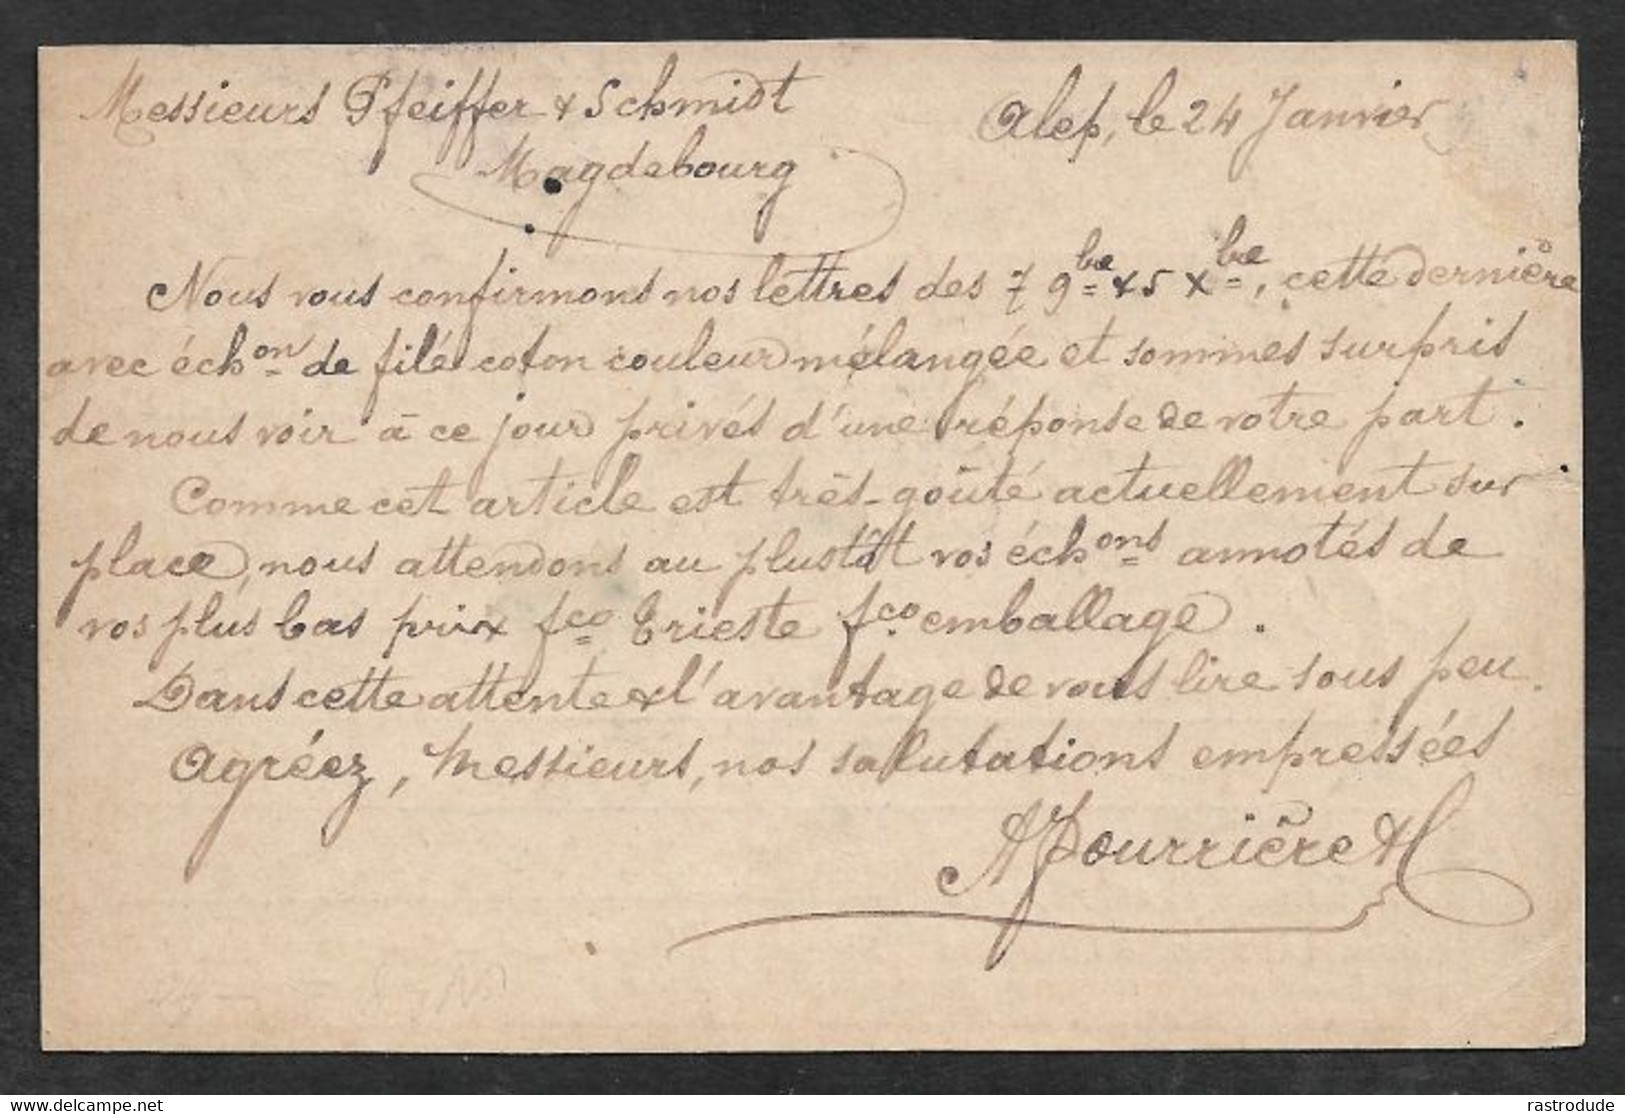 Messieurs Pfeiffer & Schmidt
Magdebourg
Alep, le 24 Janvier
Nous vous confirmons nos lettres des 7 9bre & 5 Xbre, cette dernière
avec échon de filé coton couleur mélangée et sommes surpris
de nous voir à ce jour privés d'une réponse de votre part.
Comme cet article est très-goûté actuellement sur
place, nous attendons au plustôt vos échons annotés de
vos plus bas prix fco Trieste fco emballage.
Dans cette attente & l'avantage de vous lire sous peu.
Agréez, Messieurs, nos salutations empressées
Pourrière
www.delcampe.net
rastrodude